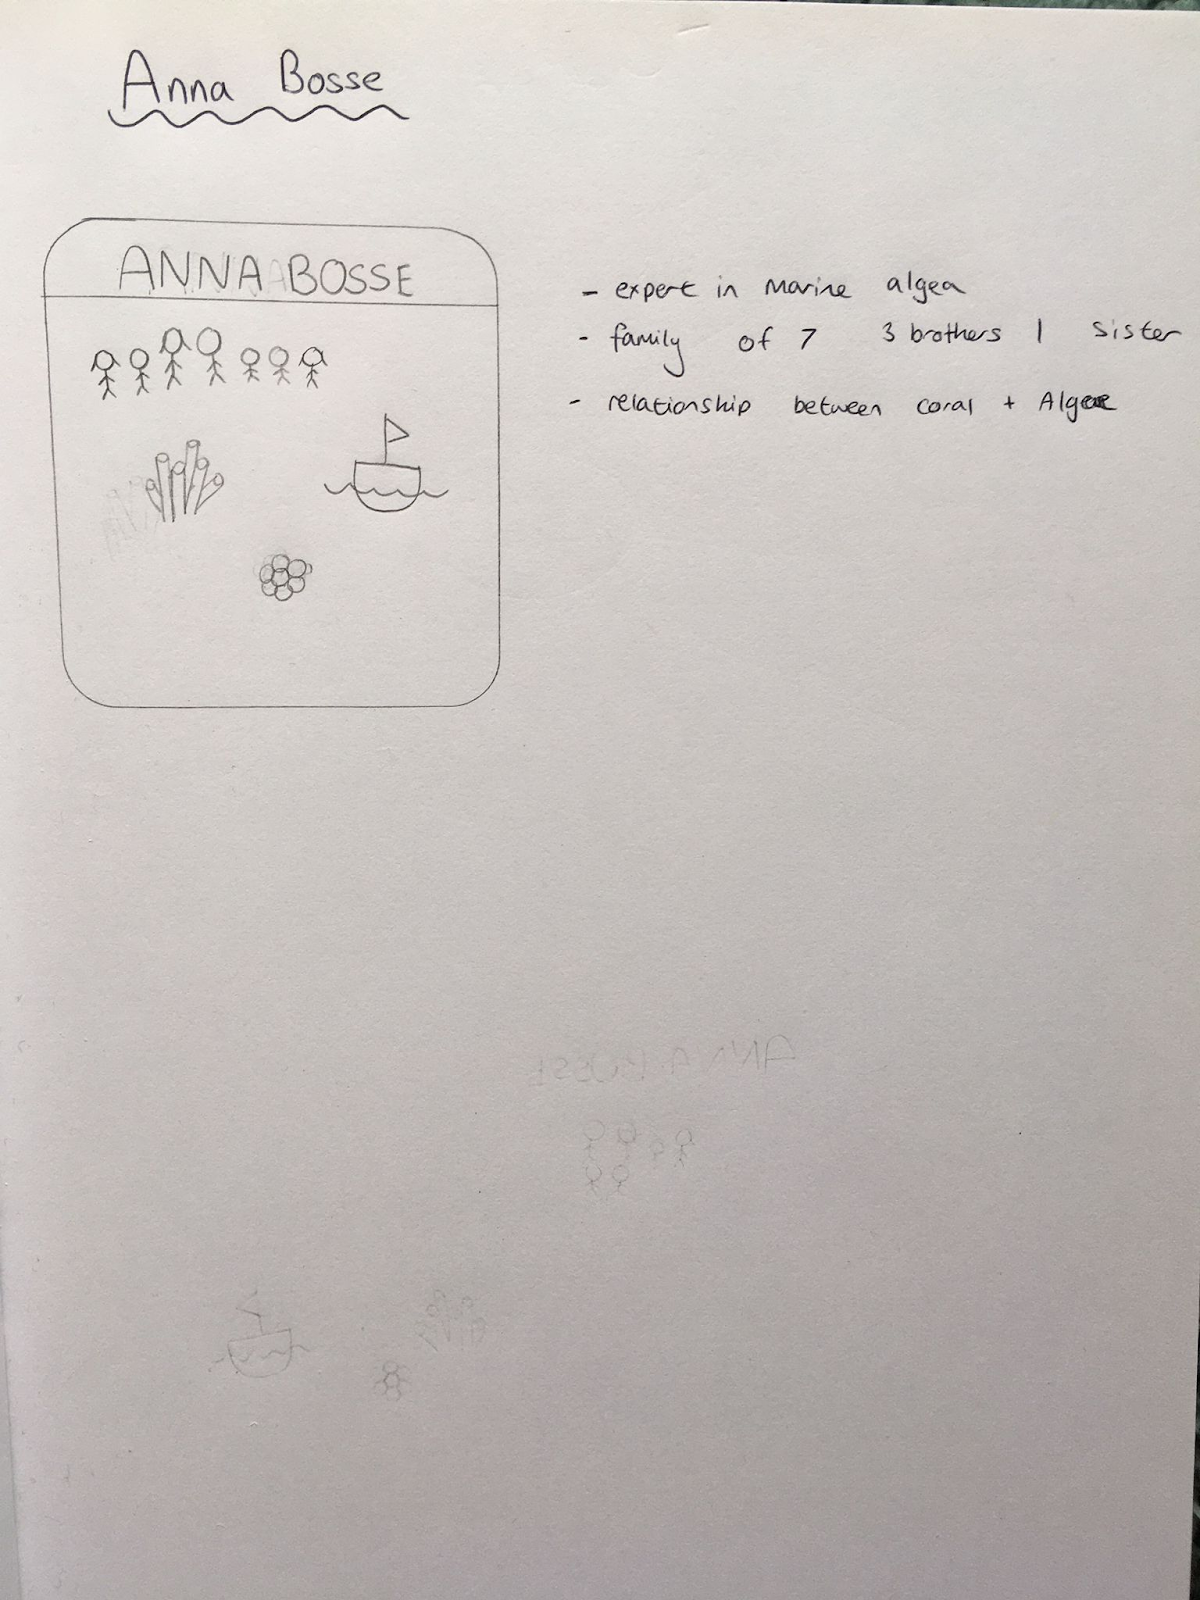 Anna Bosse
ANNA BOSSE
- expert in Marine algea
- family of 7 3 brothers 1 sister
- relationship between coral + Algae
ANNA BOSSE